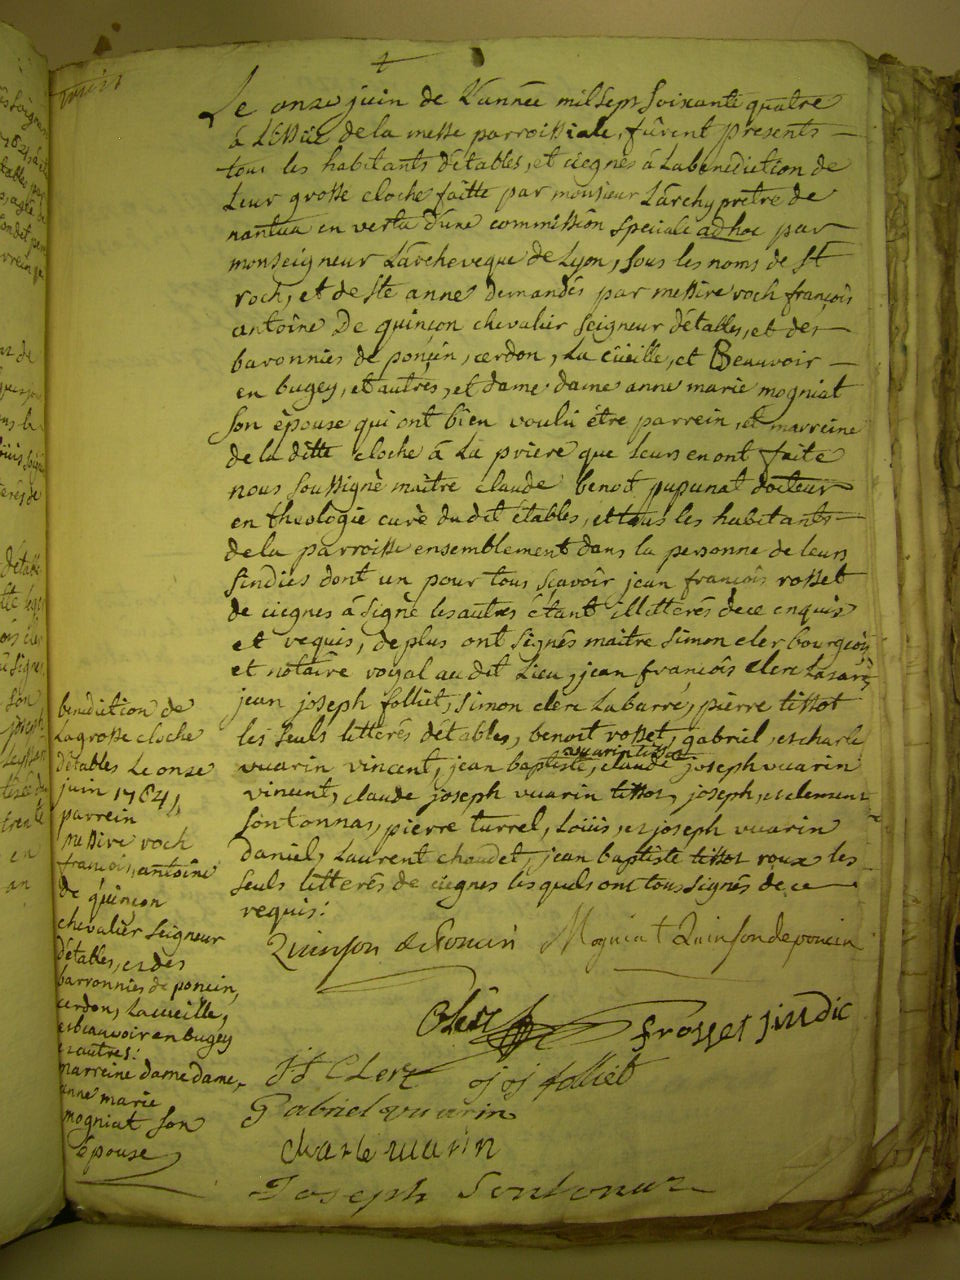 Le onze juin de L'année mil sept soixante quatre
à L'Essüe de la messe parroissiale, fûrent presents
tous les habitants d'étables, et ciegnes à La benediction de
Leur grosse cloche faitte par monsieur L'archyprêtre de
nantua en vertu d'une commission speciale ad hoc par
monseigneur L'archeveque de Lyon, sous les noms de St
roch, et de Ste anne demandés par messire roch françois
antoine De quinçon chevalier seigneur d'étables, et des
baronnies de ponçin, cerdon, La cüeille, et Beauvoir
en bugey, et autres, et dame dame anne marie mogniat
son épouse qui ont bien voulu être parrein, et marreine
de la ditte cloche à La priere que leurs en ont faite
nous soussigné maitre claude benoit pupunat docteur
en theologie curé du dit étables, et tous les habitants
de la parroisse ensemblement dans la personne de leurs
sindics dont un pour tous sçavoir jean françois rosset
de ciegnes à signé les autres étant illitterés de ce enquis
et requis, de plus ont signés maitre simon clerc bourgeois
et notaire royal au dit Lieu, jean françois clerc
jean joseph folliet, simon clerc Labarre, pierre tissot
les seuls litterés d'étables, benoit rosset, gabriel, et charle
vuarin vincent, jean baptiste vuarin tissot, claude joseph vuarin
vincent, claude joseph vuarin tissot, joseph, et clement
sontonnas, pierre turrel, Loüis, et joseph vuarin
daniel, Laurent chaudet, jean baptiste tissot roux les
seuls litterés de ciegnes lesquels ont tous signés de ce
requis.
Quinson de Poncin Mogniat Quinson de poncin
Clerc
f rosset sindic
J f Clerc j j folliet
Gabriel vuarin
charle vuarin
Joseph Sontonnaz
benediction de
La grosse cloche
d'étables Le onze
juin 1764,
parrein
messire roch
françois, antoine
de quinçon
chevalier seigneur
d'étables, et des
barronnies de poncin,
cerdon, La cueille,
et beauvoir en bugey
et autres:
marreine dame dame,
anne marie
mogniat son
épouse